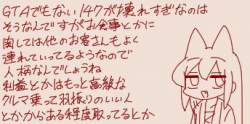 GTAでもない/47が壊れすぎなのは
そうなんですがお食事とかに
関しては他のお客さんもよく
連れていってるようなので
人柄なんでしょうね
利益とかはもっと高級な
クルマ乗って羽振りのいい人
とかからある程度取ってるとか